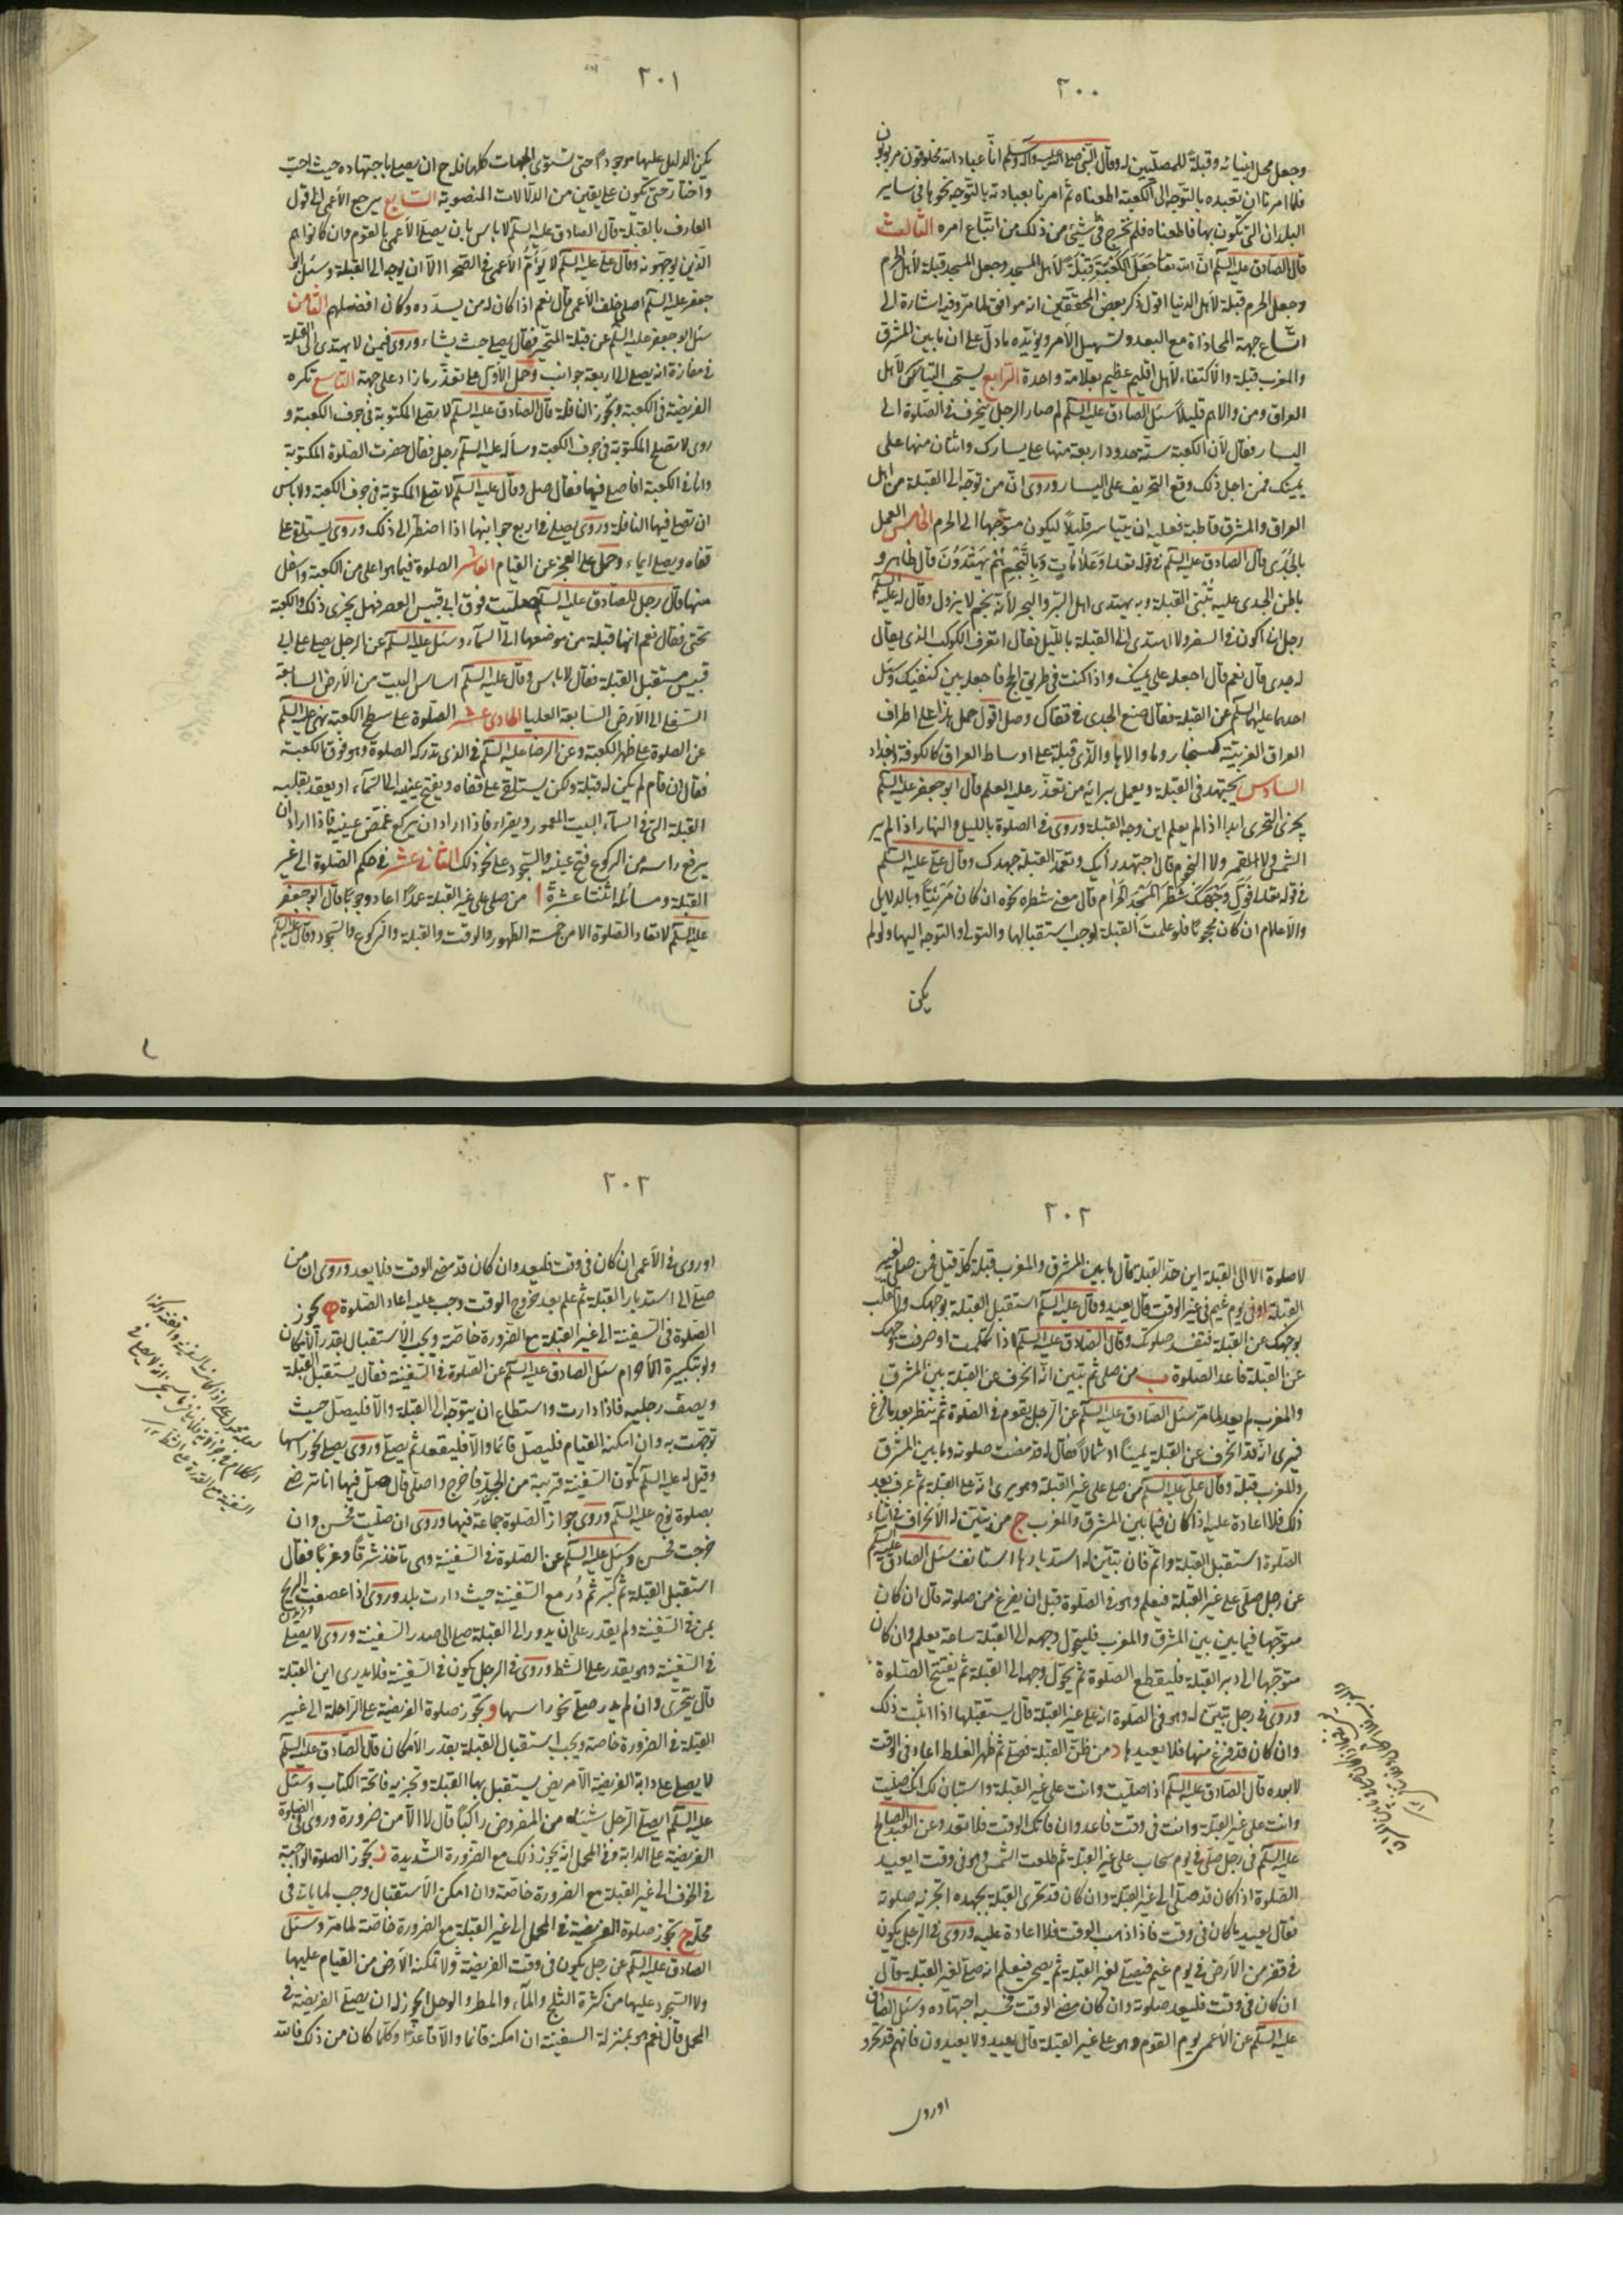 ٢٠٠
وجعل محل انبيائه وقبلة للمصلين له وقال النبي صلى الله عليه وآله وسلم انا عباد الله مخلوقون مربوبون
فلما امرنا ان نعبده بالتوجه الى الكعبة اطعناه ثم امرنا بعبادته بالتوجه نحوها في ساير
البلدان التي نكون بها فاطعناه فلم نخرج في شيئ من ذلك من اتباع امره الثالث
قال الصادق عليه السلم ان الله تعا جعل الكعبة قبلة لأهل المسجد وجعل المسجد قبلة لأهل الحرم
وجعل الحرم قبلة لأهل الدنيا اقول ذكر بعض المحققين انه موافق لما مر وفيه اشارة الى
اتساع جهة المحاذاة مع البعد وتسهيل الأمر ويؤيده ما دل على ان ما بين المشرق
والمغرب قبلة والأكتفاء لأهل اقليم عظيم بعلامة واحدة الرابع يستحب التياسر لأهل
العراق ومن والاهم قليلا سئل الصادق عليه السلم لم صار الرجل ينحرف في الصلوة الى
اليسار فقال لأن الكعبة ستة حدود اربعة منها على يسارك واثنان منها على
يمينك فمن اجل ذلك وقع التحريف على اليسار وروى ان من توجه الى القبلة من اهل
العراق والمشرق قاطبة فعليه ان يتياسر قليلا ليكون متوجها الى الحرم الخامس العمل
بالجدى قال الصادق عليه السلم في قوله تعا وعلامات وبالنجم هم يهتدون قال ظاهر و
باطن الجدى عليه تبنى القبلة وبه يهتدى اهل البر والبحر لأنه نجم لا يزول وقال له عليه السلم
رجل انى اكون في السفر ولا اهتدى الى القبلة بالليل فقال اتعرف الكوكب الذى يقال
له جدى قال نعم قال اجعله على يمينك واذا كنت في طريق الحج فاجعله بين كتفيك وسئل
احدهما عليهما السلم عن القبلة فقال ضع الجدى في قفاك وصل اقول حمل هذا على اطراف
العراق الغربية كسنجار وما والاها والذى قبله على اوساط العراق كالكوفة وبغداد
السادس يجتهد في القبلة ويعمل برائه من تعذر عليه العلم قال ابو جعفر عليه السلم
يجزى التحرى ابدا اذا لم يعلم اين وجه القبلة وروى في الصلوة بالليل والنهار اذا لم ير
الشمس ولا القمر ولا النجوم قال اجتهد رأيك وتعمد القبلة جهدك وقال على عليه السلم
في قوله تعا فول وجهك شطر المسجد الحرام قال معنى شطره نحوه ان كان مرئيا وبالدلايل
والأعلام ان كان محجوبا فلو علمت القبلة لوجب استقبالها والتولى والتوجه اليها ولو لم
يكن
٢٠١
يكن الدليل عليها موجودا حتى تستوى الجهات كلها فله ح ان يصلى باجتهاده حيث احب
واختار حتى يكون على يقين من الدلالات المنصوبة السابع يرجع الأعمى الى قول
العارف بالقبلة قال الصادق عليه السلم لا باس بان يصلى الأعمى بالقوم وان كانوا هم
الذين يوجهونه وقال على عليه السلم لا يؤم الأعمى في الصحرا الا ان يوجه الى القبلة وسئل ابو
جعفر عليه السلم اصلى خلف الأعمى قال نعم اذا كان له من يسدده وكان افضلهم الثامن
سئل ابو جعفر عليه السلم عن قبلة المتحير فقال يصلى حيث يشاء وروى فيمن لا يهتدى الى القبلة
في مفازة انه يصلى الى اربعة جوانب وحمل الأول على تعذر ما زاد على جهة التاسع تكره
الفريضة في الكعبة ويجوز النافلة قال الصادق عليه السلم لا تصلى المكتوبة في جوف الكعبة و
روى لا تصلح المكتوبة في جوف الكعبة وسأله عليه السلم رجل فقال حضرت الصلوة المكتوبة
وانا في الكعبة افاصلى فيها فقال صل وقال عليه السلم لا تصل المكتوبة في جوف الكعبة ولا باس
ان تصلى فيها النافلة وروى يصلى في اربع جوانبها اذا اضطر الى ذلك وروى يستلقى على
قفاه ويصلى ايماء وحمل على العجز عن القيام العاشر الصلوة فيما هو اعلى من الكعبة واسفل
منها قال رجل للصادق عليه السلم صليت فوق ابى قبيس العصر فهل يجزى ذلك والكعبة
تحتى فقال نعم انها قبلة من موضعها الى السماء وسئل عليه السلم عن الرجل يصلى على ابى
قبيس مستقبل القبلة فقال لا باس وقال عليه السلم اساس البيت من الأرض السابعة
السفلى الى الأرض السابعة العليا الحادى عشر الصلوة على سطح الكعبة نهى عليه السلم
عن الصلوة على ظهر الكعبة وعن الرضا عليه السلم في الذى تدركه الصلوة وهو فوق الكعبة
فقال ان قام لم يكن له قبلة ولكن يستلقى على قفاه ويفتح عينيه الى السماء ويعقد بقلبه
القبلة التى في السماء البيت المعمور ويقراء فاذا اراد ان يركع غمض عينيه فاذا اراد ان
يرفع راسه من الركوع فتح عينيه والسجود على نحو ذلك الثانى عشر في حكم الصلوة الى غير
القبلة ومسائله اثنتا عشرة ا من صلى على غير القبلة عمدا اعاد وجوبا قال ابو جعفر
عليه السلم لا تعاد الصلوة الا من خمسة الطهور والوقت والقبلة والركوع والسجود وقال عليه السلم
٢٠٢
لا صلوة الا الى القبلة اين حد القبلة قال ما بين المشرق والمغرب قبلة كله قيل فمن صلى لغير
القبلة او في يوم غيم في غير الوقت قال يعيد وقال عليه السلم استقبل القبلة بوجهك ولا تقلب
بوجهك عن القبلة فتفسد صلوتك وقال الصادق عليه السلم اذا تكلمت او صرفت وجهك
عن القبلة فاعد الصلوة ب من صلى ثم تبين انه انحرف عن القبلة بين المشرق
والمغرب لم يعد لما مر سئل الصادق عليه السلم عن الرجل يقوم في الصلوة ثم ينظر بعد ما فرغ
فيرى انه قد انحرف عن القبلة يمينا او شمالا فقال له قد مضت صلوته وما بين المشرق
والمغرب قبلة وقال على عليه السلم من صلى على غير القبلة وهو يرى انه على القبلة ثم عرف بعد
ذلك فلا اعادة عليه اذا كان فيما بين المشرق والمغرب ج من تبين له الأنحراف في اثناء
الصلوة استقبل القبلة واتم فان تبين له استدبارها استانف سئل الصادق عليه السلم
عن رجل صلى على غير القبلة فيعلم وهو في الصلوة قبل ان يفرغ من صلوته قال ان كان
متوجها فيما بين المشرق والمغرب فليحول وجهه الى القبلة ساعة يعلم وان كان
متوجها الى دبر القبلة فليقطع الصلوة ثم يحول وجهه الى القبلة ثم يفتتح الصلوة
وروى في رجل تبين له وهو في الصلوة انه على غير القبلة قال يستقبلها اذا اثبت ذلك
وان كان قد فرغ منها فلا يعيدها د من ظن القبلة فصلى ثم ظهر الغلط اعاد في الوقت
لا بعده قال الصادق عليه السلم اذا صليت وانت على غير القبلة واستبان لك انك صليت
وانت على غير القبلة وانت في وقت فاعد وان فاتك الوقت فلا تعد وعن العبد الصالح
عليه السلم في رجل صلى في يوم سحاب على غير القبلة ثم طلعت الشمس وهو في وقت ايعيد
الصلوة اذا كان قد صلى الى غير القبلة وان كان قد تحرى القبلة بجهده اتجزيه صلوته
فقال يعيد ما كان في وقت فاذا ذهب الوقت فلا اعادة عليه وروى في الرجل يكون
في قفر من الأرض في يوم غيم فيصلى لغير القبلة ثم يصحى فيعلم انه صلى لغير القبلة قال
ان كان في وقت فليعد صلوته وان كان مضى الوقت فحسبه اجتهاده وسئل الصادق
عليه السلم عن الأعمى يوم القوم وهو على غير القبلة قال يعيد ولا يعيدون فانهم قد تحروا
او روى
٢٠٣
او روى في الأعمى ان كان في وقت فليعد وان كان قد مضى الوقت فلا يعد وروى ان من
صلى الى استدبار القبلة ثم علم بعد خروج الوقت وجب عليه اعادة الصلوة ه يجوز
الصلوة في السفينة الى غير القبلة مع الضرورة خاصة ويجب الأستقبال بقدر الأمكان
ولو بتكبيرة الأحرام سئل الصادق عليه السلم عن الصلوة في السفينة فقال يستقبل القبلة
ويصف رجليه فاذا دارت واستطاع ان يتوجه الى القبلة والا فليصل حيث
توجهت به وان امكنه القيام فليصل قائما والا فليقعد ثم يصلى وروى يصلى نحو راسها
وقيل له عليه السلم تكون السفينة قريبة من الجد فاخرج واصلى قال صل فيها اما ترضى
بصلوة نوح عليه السلم وروى جواز الصلوة جماعة فيها وروى ان صليت فحسن وان
خرجت فحسن وسئل عليه السلم عن الصلوة في السفينة وهى تاخذ شرقا وغربا فقال
استقبل القبلة ثم كبر ثم در مع السفينة حيث دارت بك وروى اذا عصفت الريح
بمن في السفينة ولم يقدر على ان يدور الى القبلة صلى الى صدر السفينة وروى لا يصلى
في السفينة وهو يقدر على الشط وروى في الرجل يكون في السفينة فلا يدرى اين القبلة
قال يتحرى وان لم يدر صلى نحو راسها و يجوز صلوة الفريضة على الراحلة الى غير
القبلة في الضرورة خاصة ويجب استقبال القبلة بقدر الأمكان قال الصادق عليه السلم
لا يصلى على دابة الفريضة الا مريض يستقبل بها القبلة وتجزيه فاتحة الكتاب وسئل
عليه السلم ايصلى الرجل شيئا من المفروض راكبا قال لا الا من ضرورة وروى في الصلوة
الفريضة على الدابة وفي المحمل انه يجوز ذلك مع الضرورة الشديدة ز يجوز الصلوة الواجبة
في الخوف الى غير القبلة مع الضرورة خاصة وان امكن الأستقبال وجب لما ياتى في
محله ح يجوز صلوة الفريضة في المحمل الى غير القبلة مع الضرورة خاصة لما مر وسئل
الصادق عليه السلم عن رجل يكون في وقت الفريضة ولا تمكنه الأرض من القيام عليها
ولا السجود عليها من كثرة الثلج والماء والمطر والوحل ايجوز له ان يصلى الفريضة في
المحمل قال نعم هو بمنزلة السفينة ان امكنه قائما والا قاعدا وكلما كان من ذلك فالله